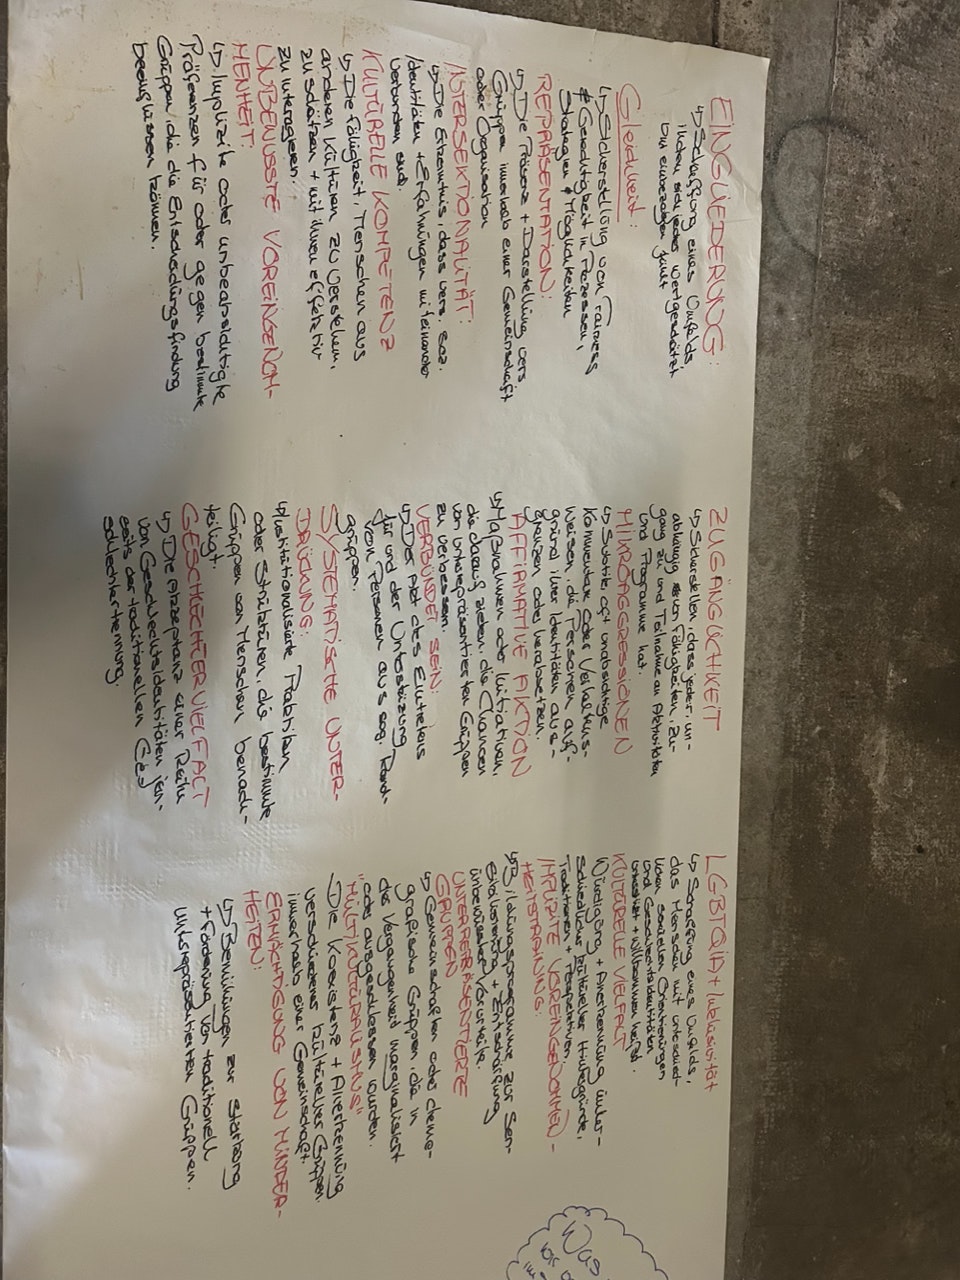 EINGLIEDERUNG:
↳ Schaffung eines Umfelds,
indem sich jeder wertgeschätzt
und einbezogen fühlt
Gleichheit:
↳ Sicherstellung von Fairness
+ Gerechtigkeit in Prozessen,
Strategien + Möglichkeiten
REPRÄSENTATION:
↳ Die Präsenz + Darstellung vers.
Gruppen innerhalb einer Gemeinschaft
oder Organisation
INTERSEKTIONALITÄT:
↳ Die Erkenntnis, dass vers. soz.
Identitäten + Erfahrungen miteinander
verbunden sind.
KULTURELLE KOMPETENZ
↳ Die Fähigkeit, Menschen aus
anderen Kulturen zu verstehen,
zu schätzen + mit ihnen effektiv
zu interagieren.
UNBEWUSSTE VOREINGENOM-
MENHEIT:
↳ Implizite oder unbeabsichtigte
Präferenzen für oder gegen bestimmte
Gruppen, die die Entscheidungsfindung
beeinflussen können.
ZUGÄNGLICHKEIT
↳ Sicherstellen, dass jeder un-
abhängig von Fähigkeiten, Zu-
gang zu und Teilnahme an Aktivitäten
und Programme hat.
MIKROAGGRESSIONEN
↳ Subtile oft unabsichtige
Kommentare oder Verhaltens-
weisen, die Personen auf-
grund ihrer Identitäten aus-
grenzen oder herabsetzen.
AFFIRMATIVE AKTION
↳ Maßnahmen oder Initiativen,
die darauf zielen, die Chancen
von unterepräsentierten Gruppen
zu verbessern.
VERBÜNDET SEIN:
↳ Der Akt des Eintretens
für und der Unterstützung
von Personen aus sog. Rand-
gruppen.
SYSTEMATISCHE UNTER-
DRÜCKUNG:
↳ Institutionalisierte Praktiken
oder Strukturen, die bestimmte
Gruppen von Menschen benach-
teiligt.
GESCHLECHTERVIELFACT
↳ Die Akzeptanz einer Reihe
von Geschlechtsidentitäten jen-
seits der traditionellen
schlechtertrennung.
LGBTQIA+ Inklusivität
↳ Schaffung eines Umfelds,
das Menschen mit unterschied-
lichen sexuellen Orientierungen
und Geschlechtsidentitäten
unterstützt + willkommen heißt.
KULTURELLE VIELFALT
Würdigung + Anerkennung unter-
schiedlicher kultureller Hintergründe,
Traditionen + Perspektiven.
IMPLIZITE VOREINGENOMMEN-
HEITSTRAINING:
↳ Bildungsprogramme zur Sen-
sibilisierung + Entschärfung
unbewusster Vorurteile.
UNTERREPRÄSENTIERTE
GRUPPEN
↳ Gemeinschaften oder demo-
grafische Gruppen, die in
der Vergangenheit marginalisiert
oder ausgeschlossen wurden.
"MULTIKULTURALISMUS"
Die Koexistenz + Anerkennung
verschiedener kultureller Gruppen
innerhalb einer Gemeinschaft.
ERMÄCHTIGUNG VON MINDER-
HEITEN:
↳ Bemühungen zur Stärkung
+ Förderung von traditionell
unterrepräsentierten Gruppen.
Was